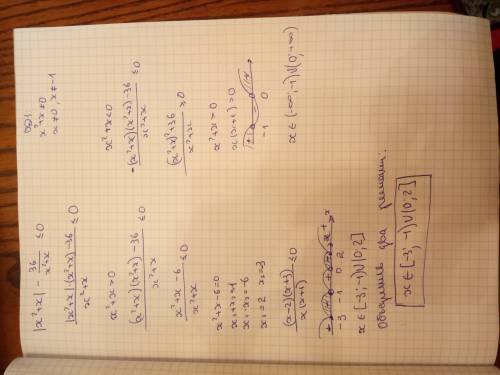 |x²+x| - 36/(x²+x) ≤ 0
|x²+x|(x²+x)-36/(x²+x) ≤ 0
x²+x>0
(x²+x)(x²+x)-36/(x²+x) ≤ 0
x²+x-6/(x²+x) ≤ 0
x²+x-6=0
x₁+x₂=-1
x₁·x₂=-6
x₁=2 x₂=-3
(x-2)(x+3)/x(x+1) ≤ 0
-3 -1 0 2
x∈[-3;-1)∪(0;2]
ОДЗ:
x²+x≠0
x≠0, x≠-1
x²+x<0
-(x²+x)(x²+x)-36/(x²+x) ≤ 0
(x²+x)²+36/(x²+x) ≥ 0
x²+x>0
x(x+1)>0
-1 0
x∈(-∞;-1)∪(0;+∞)
Объединяя два решения:
x∈[-3;-1)∪(0;2]